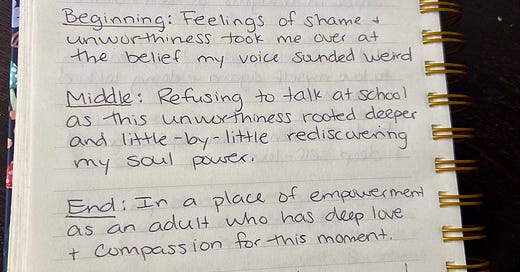 Beginning: Feelings of shame +
unworthiness took me over at
the belief my voice sounded weird
Middle: Refusing to talk at school
as this unworthiness rooted deeper
and little-by-little rediscovering
my soul power.
End: In a place of empowerment
as an adult who has deep love
+ compassion for this moment.